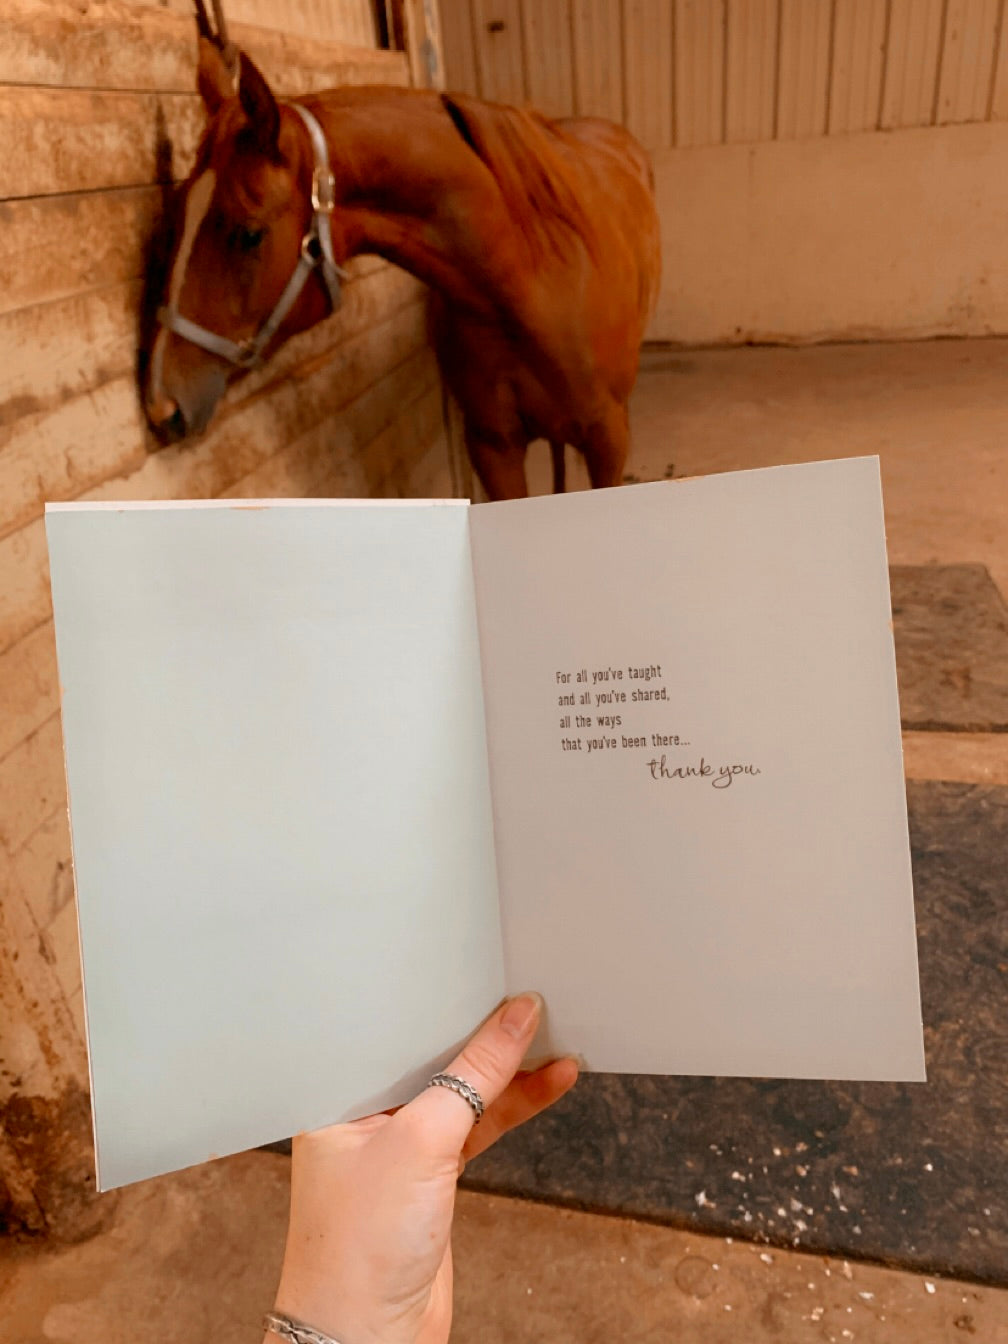 For all you've taught
and all you've shared,
all the ways
that you've been there...
thank you.